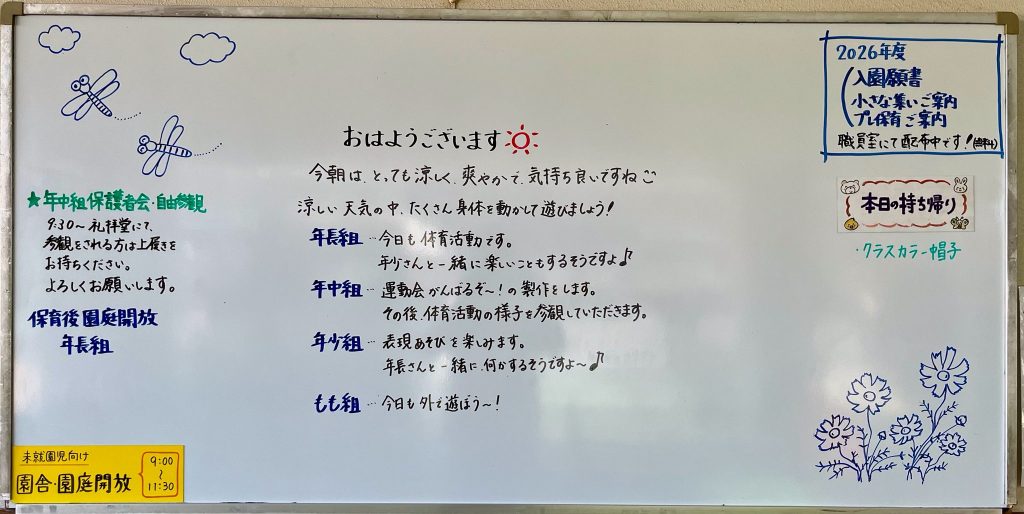 2026年度
入園願書
小さな集いご案内
プレ保育ご案内
職員室にて配布中です!(無料)
おはようございます
今朝は、とっても涼しく、爽やかで、気持ち良いですね
涼しい天気の中、たくさん身体を動かして遊びましょう!
年長組…今日も体育活動です。
年少さんと一緒に楽しいこともするそうですよ♪
年中組…運動会がんばるぞ〜!の製作をします。
その後、体育活動の様子を参観していただきます。
年少組…表現あそびを楽しみます。
年長さんと一緒に、何かするそうですよ〜♪
もも組…今日も外で遊ぼう〜!
★年中組保護者会・自由参観
9:30〜礼拝堂にて、
参観をされる方は上履きを
お持ちください。
よろしくお願いします。
保育後園庭開放
年長組
未就園児向け
園舎・園庭開放
9:00
〜
11:30
本日の持ち帰り
・クラスカラー帽子